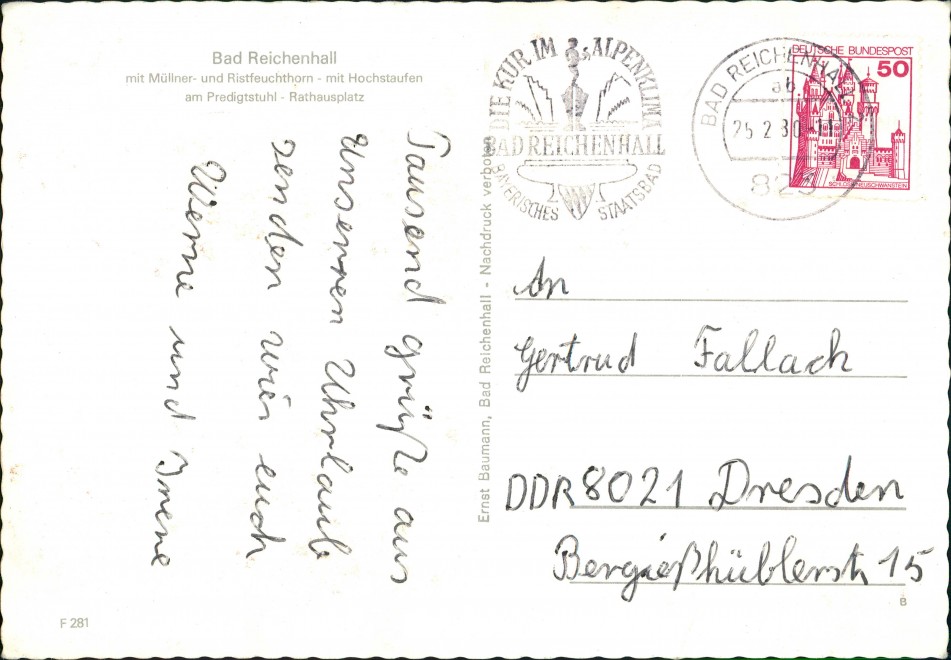 Bad Reichenhall
mit Müllner- und Ristfeuchthorn - mit Hochstaufen
am Predigtstuhl - Rathausplatz
Tausend grüße aus
unserren Uhrlaub
senden wir euch
Werne und Irene
F 281
Ernst Baumann, Bad Reichenhall - Nachdruck verboten
DIE KUR IM ALPENKLIMA
BAD REICHENHALL
BAYERISCHES STAATSBAD
BAD REICHENHALL
ab
25.2.80
823
DEUTSCHE BUNDESPOST
50
SCHLOSS NEUSCHWANSTEIN
An
Gertrud Fallach
DDR 8021 Dresden
Bergießhüblerstr 15
B